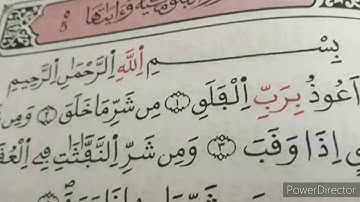 وَءَايَتُهَا ٥
بِسْمِ اِ۬للَّهِ اِ۬لرَّحْمَٰنِ اِ۬لرَّحِيمِ
اَعُوذُ بِرَبِّ اِ۬لْفَلَقِ ١ مِن شَرِّ مَا خَلَقَ ٢ وَمِن
اِذَا وَقَبَ ٣ وَمِن شَرِّ اِ۬لنَّفَّٰثَٰتِ فِے اِ۬لْعُقَ
PowerDirector